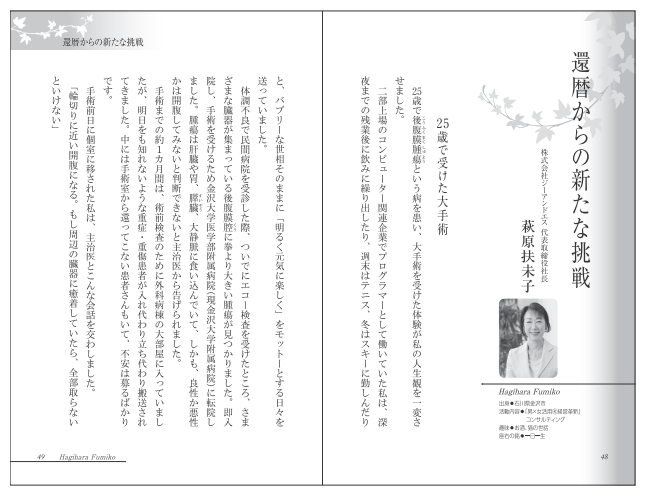 還暦からの新たな挑戦
株式会社ジーアンドエス 代表取締役社長
萩原扶未子
Hagihara Fumiko
出身●石川県金沢市
活動内容●「男×女活用®経営革新」
コンサルティング
趣味●お酒、猫の世話
座右の銘●一日一生
25歳で受けた大手術
25歳で後腹膜腫瘍という病を患い、大手術を受けた体験が私の人生観を一変さ
せました。
二部上場のコンピューター関連企業でプログラマーとして働いていた私は、深
夜までの残業後に飲みに繰り出したり、週末はテニス、冬はスキーに勤しんだり
48
還暦からの新たな挑戦
と、バブリーな世相そのままに「明るく元気に楽しく」をモットーとする日々を
送っていました。
体調不良で民間病院を受診した際、ついでにエコー検査を受けたところ、さま
ざまな臓器が集まっている後腹膜腔に拳より大きい腫瘍が見つかりました。即入
院し、手術を受けるため金沢大学医学部附属病院(現金沢大学附属病院)に転院し
ました。腫瘍は肝臓や胃、膵臓、大静脈に食い込んでいて、しかも、良性か悪性
かは開腹してみないと判断できないと主治医から告げられました。
手術までの約1カ月間は、術前検査のために外科病棟の大部屋に入っていまし
たが、明日をも知れないような重症・重傷患者が入れ代わり立ち代わり搬送され
てきました。中には手術室から還ってこない患者さんもいて、不安は募るばかり
です。
手術前日に個室に移された私は、主治医とこんな会話を交わしました。
「輪切りに近い開腹になる。もし周辺の臓器に癒着していたら、全部取らない
といけない」
49 Hagihara Fumiko